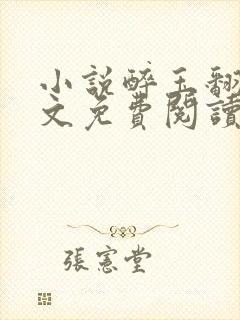 小説醉玉翻
文免費閱讀
張憲堂